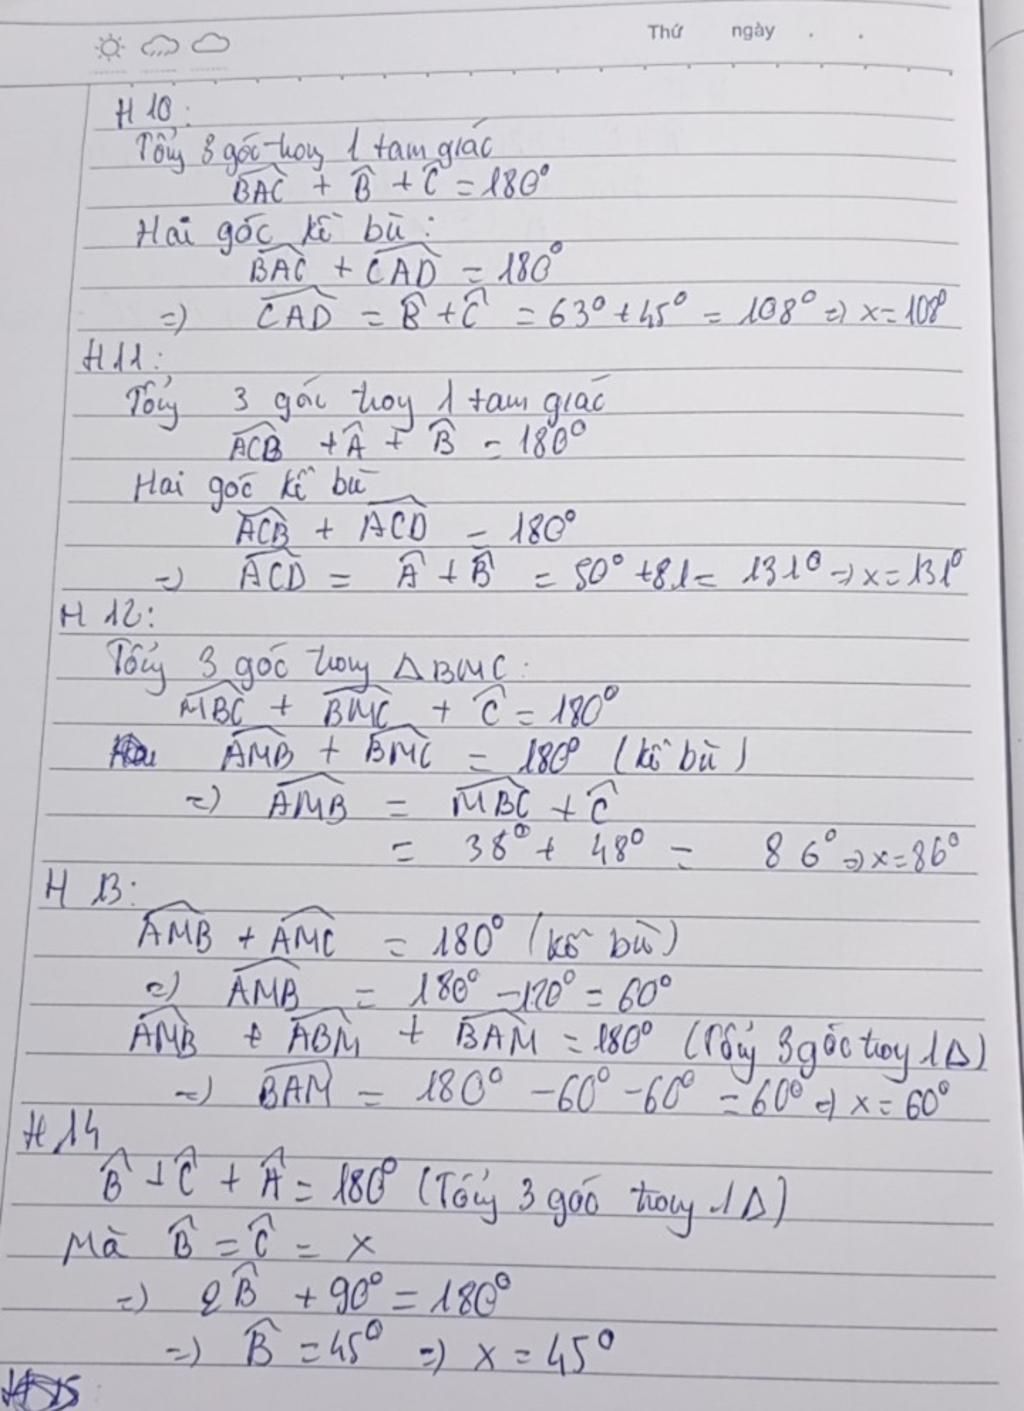 Thứ ngày . .
H 10:
Tổng 3 góc trong 1 tam giác
$\widehat{BAC} + \widehat{B} + \widehat{C} = 180°$
Hai góc kề bù:
$\widehat{BAC} + \widehat{CAD} = 180°$
=) $\widehat{CAD} = \widehat{B} + \widehat{C} = 63° + 45° = 108°$ =) x = 108°
H 11:
Tổng 3 góc trong 1 tam giác
$\widehat{ACB} + \widehat{A} + \widehat{B} = 180°$
Hai góc kề bù
$\widehat{ACB} + \widehat{ACD} = 180°$
=) $\widehat{ACD} = \widehat{A} + \widehat{B} = 50° + 81 = 131°$ =) x = 131°
H 12:
Tổng 3 góc trong ΔBMC:
$\widehat{MBC} + \widehat{BMC} + \widehat{C} = 180°$
$\widehat{AMB} + \widehat{BMC} = 180°$ (kề bù)
=) $\widehat{AMB} = \widehat{MBC} + \widehat{C}$
= 38° + 48° = 86° =) x = 86°
H 13:
$\widehat{AMB} + \widehat{AMC} = 180°$ (kề bù)
=) $\widehat{AMB} = 180° - 120° = 60°$
$\widehat{AMB} + \widehat{ABM} + \widehat{BAM} = 180°$ (Tổng 3 góc trong 1Δ)
=) $\widehat{BAM} = 180° - 60° - 60° = 60°$ =) x = 60°
H 14
$\widehat{B} + \widehat{C} + \widehat{A} = 180°$ (Tổng 3 góc trong 1Δ)
Mà $\widehat{B} = \widehat{C} = x$
=) $2\widehat{B} + 90° = 180°$
=) $\widehat{B} = 45°$ =) x = 45°